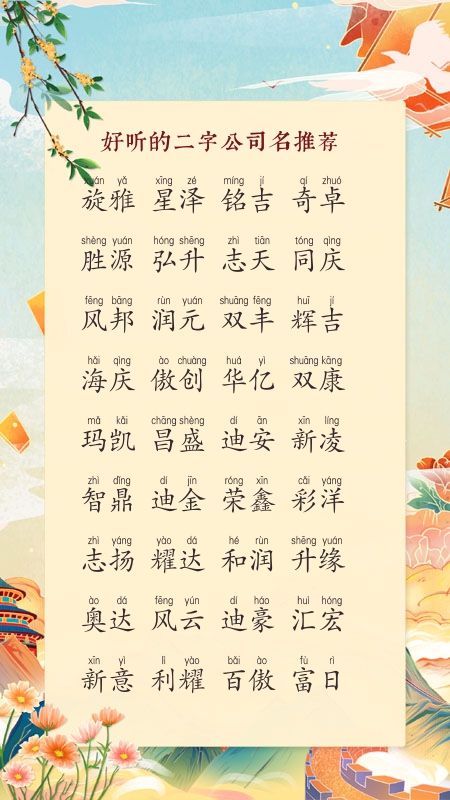 好听的二字公司名推荐
xuán yǎ xīng zé míng jí qí zhuó
旋雅 星泽 铭吉 奇卓
shèng yuán hóng shēng zhì tiān tóng qìng
胜源 弘升 志天 同庆
fēng bāng rùn yuán shuāng fēng huī jí
风邦 润元 双丰 辉吉
hǎi qìng ào chuàng huá yì shuāng kāng
海庆 傲创 华亿 双康
mǎ kǎi chāng shèng dí ān xīn líng
玛凯 昌盛 迪安 新凌
zhì dǐng dí jīn róng xīn cǎi yáng
智鼎 迪金 荣鑫 彩洋
zhì yáng yào dá hé rùn shēng yuán
志扬 耀达 和润 升缘
ào dá fēng yún dí háo huì hóng
奥达 风云 迪豪 汇宏
xīn yì lì yào bǎi ào fù rì
新意 利耀 百傲 富日